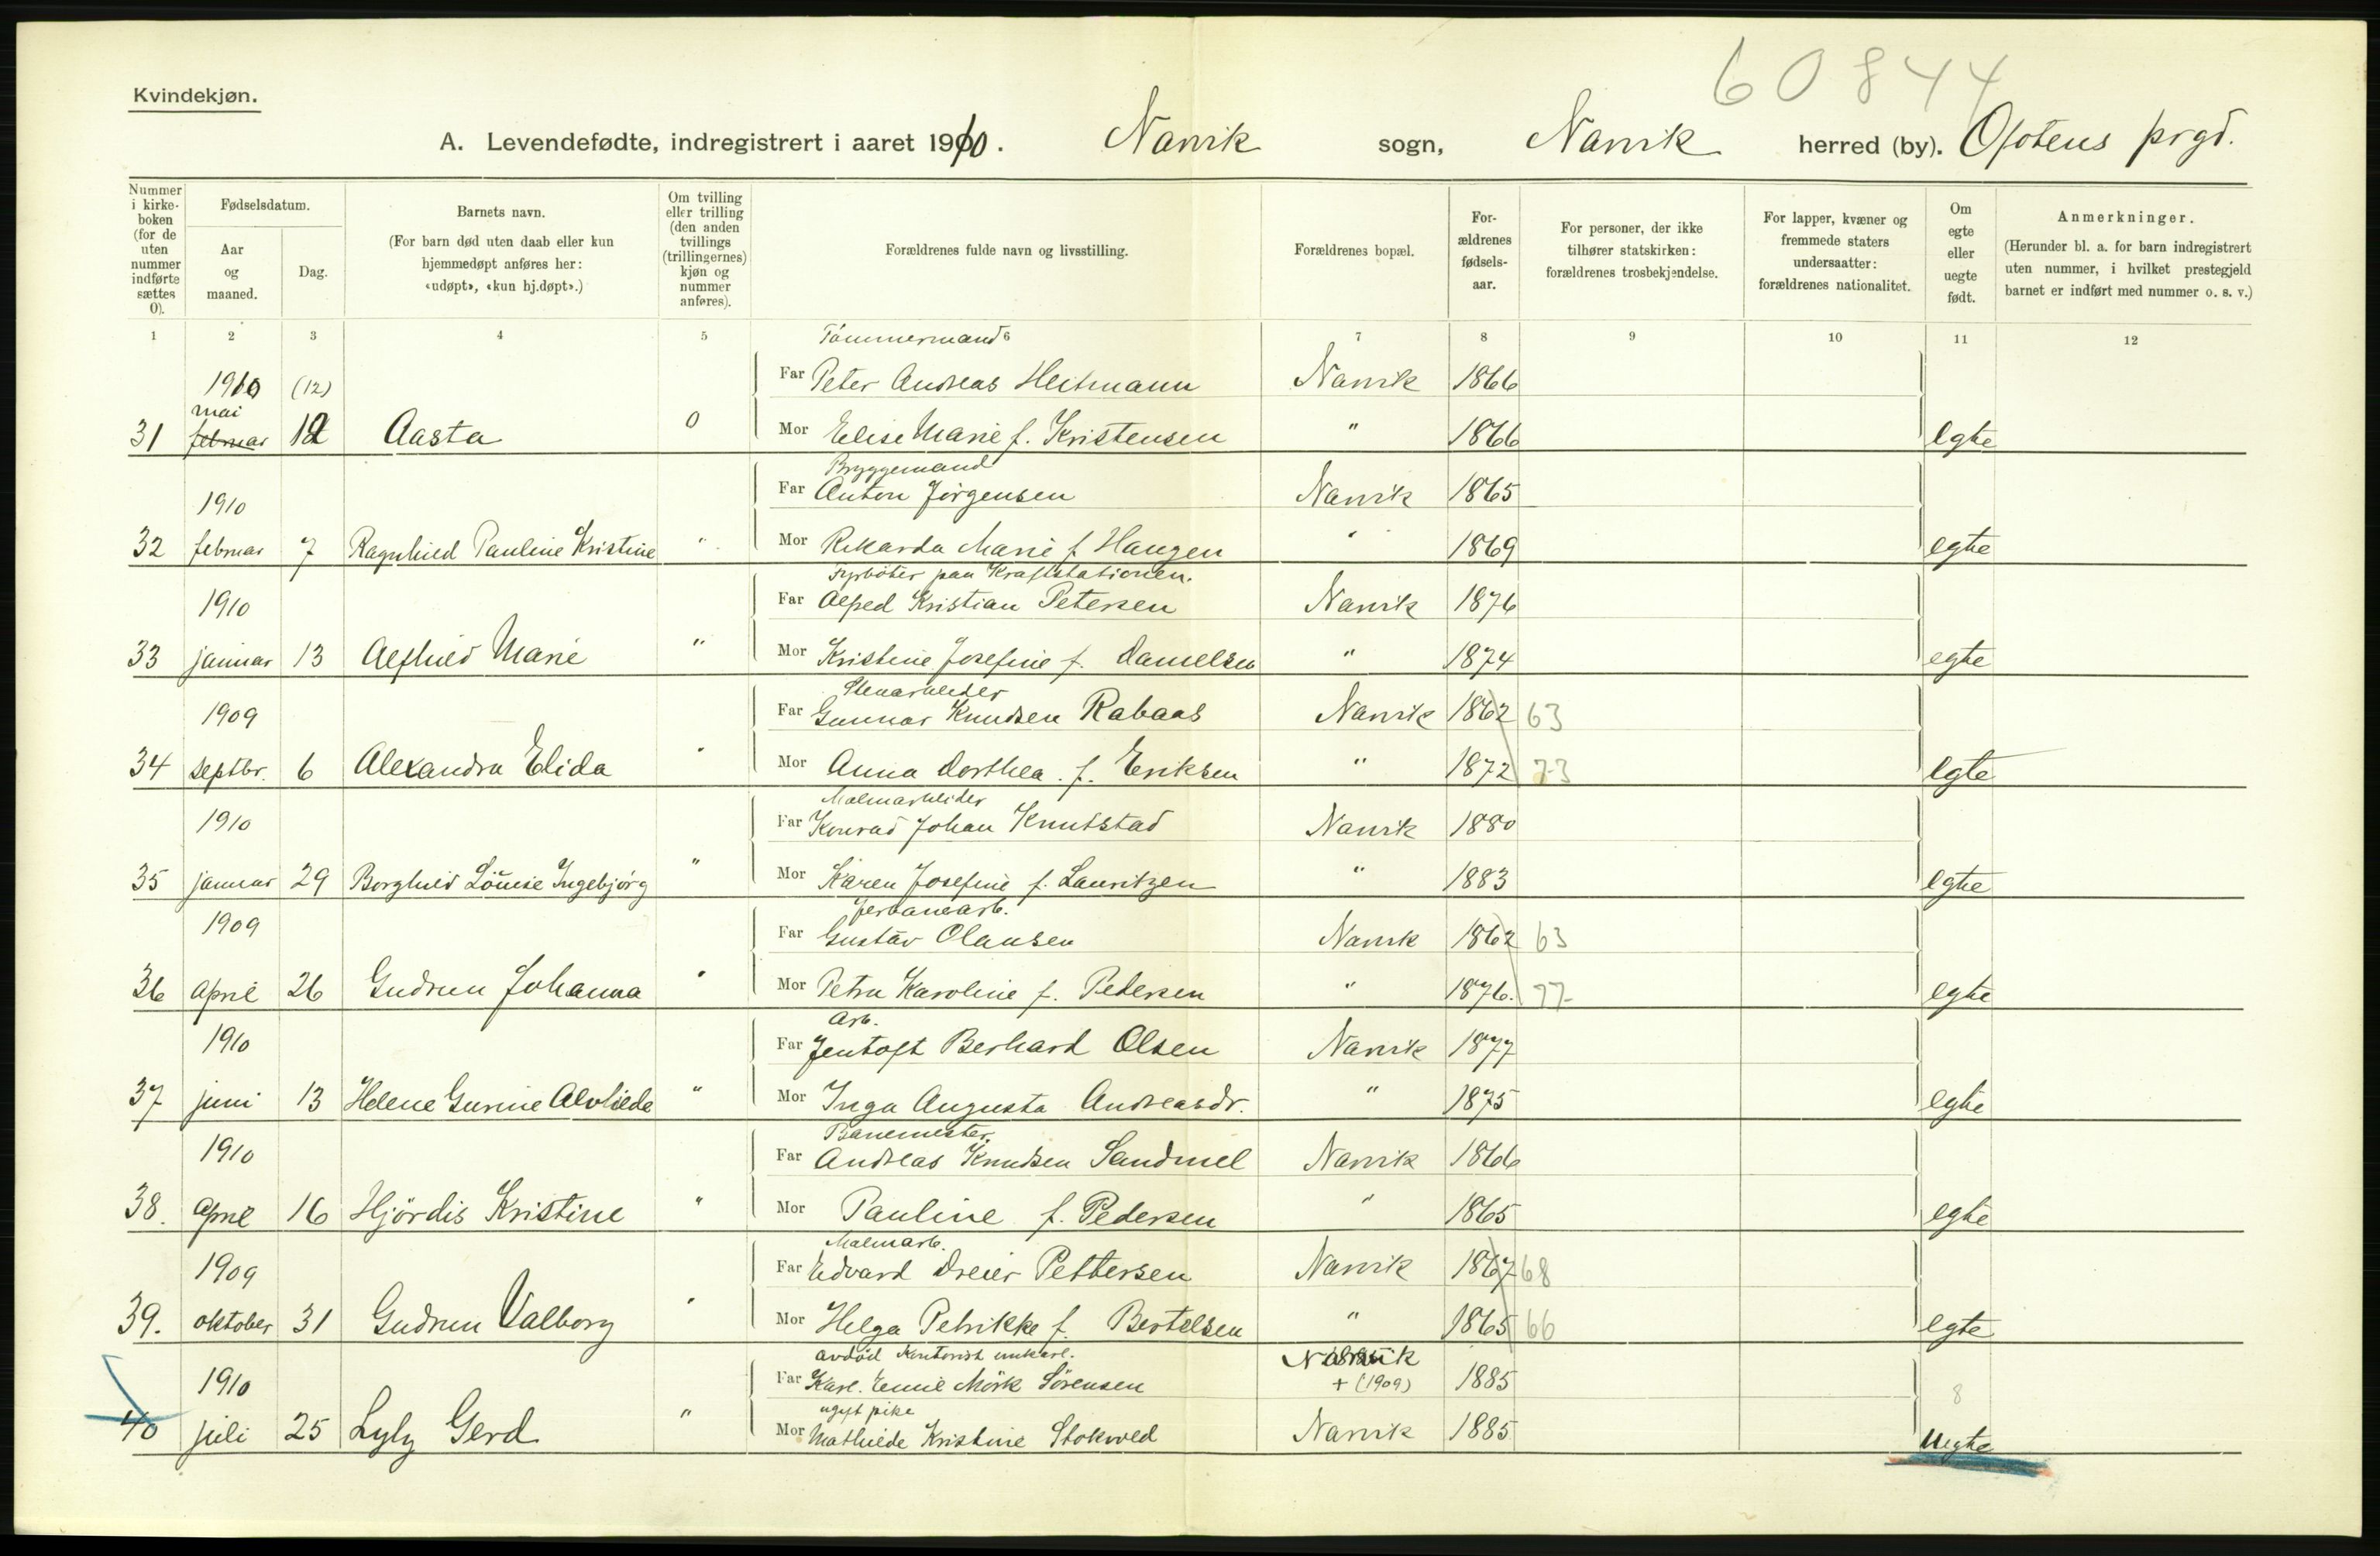 60844
Kvindekjøn.
A. Levendefødte, indregistrert i aaret 1910. Narvik sogn, Narvik herred (by). Ofotens prgd.
Nummer i kirkeboken (for de uten nummer indførte sættes 0).
Fødselsdatum.
Aar og maaned.
Dag.
Barnets navn.
(For barn død uten daab eller kun hjemmedøpt anføres her: «udøpt», «kun hj.døpt».)
Om tvilling eller trilling (den anden tvillings (trillingernes) kjøn og nummer anføres).
Forældrenes fulde navn og livsstilling.
Forældrenes bopæl.
Forældrenes fødselsaar.
For personer, der ikke tilhører statskirken: forældrenes trosbekjendelse.
For lapper, kvæner og fremmede staters undersaatter: forældrenes nationalitet.
Om egte eller uegte født.
Anmerkninger.
(Herunder bl. a. for barn indregistrert uten nummer, i hvilket prestegjeld barnet er indført med nummer o. s. v.)
1 2 3 4 5 6 7 8 9 10 11 12
Tömmermand
1910 (12) Far Peter Andreas Heitmann Narvik 1866
mai
31 februar 12 Aasta 0 Mor Elise Marie f. Kristensen " 1866 egte
Bryggemand
1910 Far Anton Jörgensen Narvik 1865
32 februar 7 Ragnhild Pauline Kristine " Mor Rikarda Marie f. Haugen " 1869 egte
Fyrböter paa Kraftstationen.
1910 Far Alfred Kristian Petersen Narvik 1876
33 januar 13 Alfhild Marie " Mor Kristine Josefine f. Danielsen " 1874 egte
Stenarbeider
1909 Far Gunnar Knudsen Rabaas Narvik 1862 63
34 septbr. 6 Alexandra Elida " Mor Anna Dorthea f. Eriksen " 1872 73 egte
Malmarbeider
1910 Far Konrad Johan Knutstad Narvik 1880
35 januar 29 Borghild Louise Ingebjörg " Mor Karen Josefine f. Lauritzen " 1883 egte
Jerbanearb.
1909 Far Gustav Olausen Narvik 1862 63
36 april 26 Gudrun Johanna " Mor Petra Karoline f. Pedersen " 1876. 77 egte
Arb.
1910 Far Jentoft Berhard Olsen Narvik 1877
37 juni 13 Helene Gurine Alvhilde " Mor Inga Augusta Andreasdr. " 1875 egte
Banemester.
1910 Far Andreas Knudsen Sandmel Narvik 1866
38. april 16 Hjördis Kristine " Mor Pauline f. Pedersen " 1865 egte
Malmarb.
1909 Far Edvard Dreier Pettersen Narvik 1867 68
39. oktober 31 Gudrun Valborg " Mor Helga Petrikke f. Bertelsen " 1865 66 egte
avdöd Kontorist unkarl. Narvik
1910 Far Karl. Emil Mörk Sörensen + (1909) 1885 8
ugift pike
40 juli 25 Lyly Gerd " Mor Mathilde Kristine Stokvold Narvik 1885 Uegte